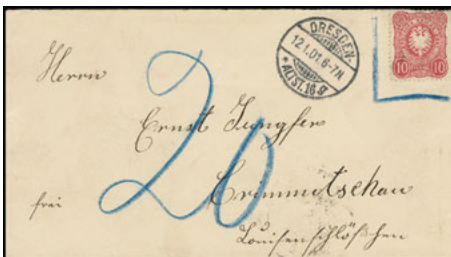 DRESDEN-
12.1.01.6-7N
*ALTST.16g
10 10
Herrn
20
Ernst Jungfer
Crimmitschau
frei
Louisenschlößchen